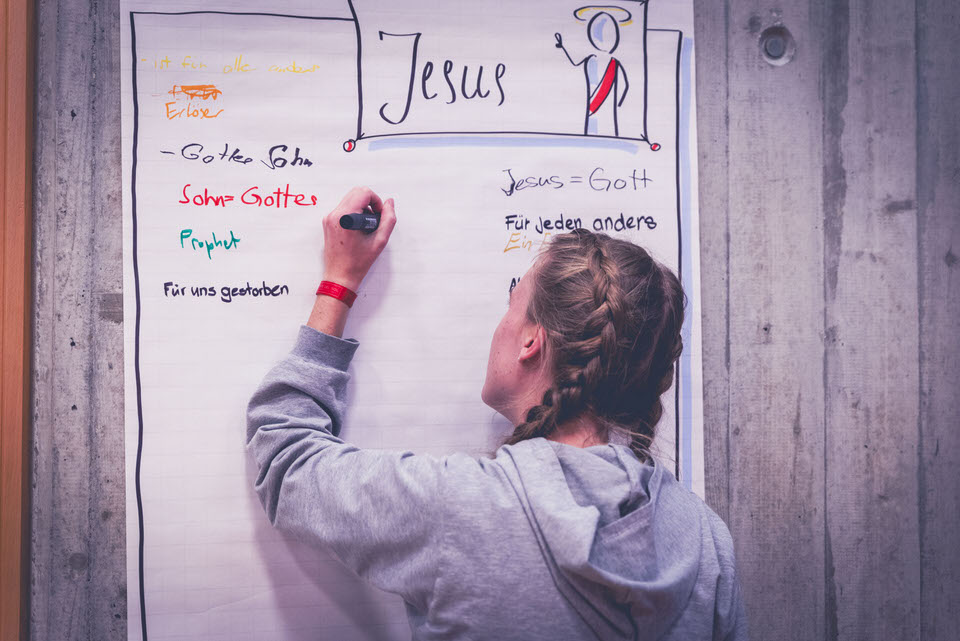 Jesus
- ist für alle anders
Erlöser
- Gottes Sohn
Sohn = Gottes
Prophet
Für uns gestorben
Jesus = Gott
Für jeden anders
Ein